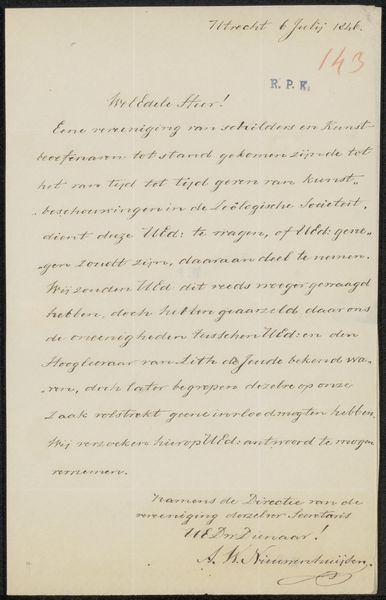 Utrecht 6 Julij 1846.
143
R. P. K.
WelEdele Heer!
Eene vereeniging van schilders en Kunst
beoefenaren tot stand gekomen zijnde tot
het van tijd tot tijd geven van Kunst„
„beschouwingen in de Zoölogische Societeit,
dient deze UEd: te vragen, of UEd: gene„
„gen zoudt zijn, daaraan deel te nemen.
Wij zouden UEd dit reeds vroeger gevraagd
hebben, doch hebben geaarzeld daar ons
de oneenigheden tusschen UEd: en den
Hoogleeraar van Lith de Jeude bekend wa„
„ren, doch later begrepen dezelve op onze
zaak volstrekt geene invloed mogten hebben.
Wij verzoeken hierop UEd: antwoord te mogen
vernemen.
Namens de Directie van de
vereeniging derzelver Secretaris
UEDn Dienaar!
A. W. Nieuwenhuijsen.